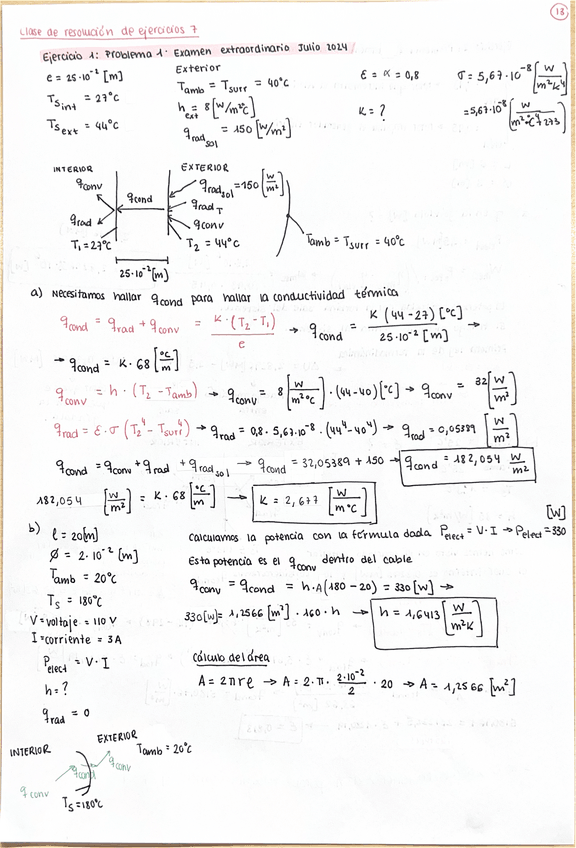 13
Clase de resolución de ejercicios 7
Ejercicio 1: Problema 1: Examen extraordinario Julio 2024
e = 25·10⁻² [m]
Ts int = 27°C
Ts ext = 44°C
Exterior
Tamb = Tsurr = 40°C
h ext = 8 [W/m²°C]
q rad sol = 150 [W/m²]
ε = α = 0,8
K = ?
σ = 5,67·10⁻⁸ [W/m²K⁴]
= 5,67·10⁻⁸ [W/m²°C⁴ 273]
INTERIOR
EXTERIOR
qconv
qcond
qrad
T₁ = 27°C
q rad sol = 150 [W/m²]
q rad T
qconv
T₂ = 44°C
Tamb = Tsurr = 40°C
25·10⁻² [m]
a) Necesitamos hallar qcond para hallar la conductividad térmica
qcond = qrad + qconv = K·(T₂-T₁)/e → qcond = K (44-27) [°C] / 25·10⁻² [m] →
→ qcond = K·68 [°C/m]
qconv = h·(T₂ - Tamb) → qconv = 8 [W/m²°C]·(44-40) [°C] → qconv = 32 [W/m²]
qrad = ε·σ (T₂⁴ - Tsurr⁴) → qrad = 0,8·5,67·10⁻⁸·(44⁴-40⁴) → qrad = 0,05389 [W/m²]
qcond = qconv + qrad + q rad sol → qcond = 32,05389 + 150 → qcond = 182,054 W/m²
182,054 [W/m²] = K·68 [°C/m] → K = 2,677 [W/m°C]
b) l = 20[m]
Ø = 2·10⁻² [m]
Tamb = 20°C
Ts = 180°C
V = voltaje = 110 V
I = corriente = 3 A
Pelect = V·I
h = ?
qrad = 0
calculamos la potencia con la fórmula dada Pelect = V·I → Pelect = 330 [W]
Esta potencia es el qconv dentro del cable
qconv = qcond = h·A(180-20) = 330 [W] →
330[W] = 1,2566 [m²]·160·h → h = 1,6413 [W/m²K]
Cálculo del área
A = 2πrl → A = 2·π·2·10⁻²/2·20 → A = 1,2566 [m²]
INTERIOR
EXTERIOR
Tamb = 20°C
qcond
qconv
qconv
Ts = 180°C